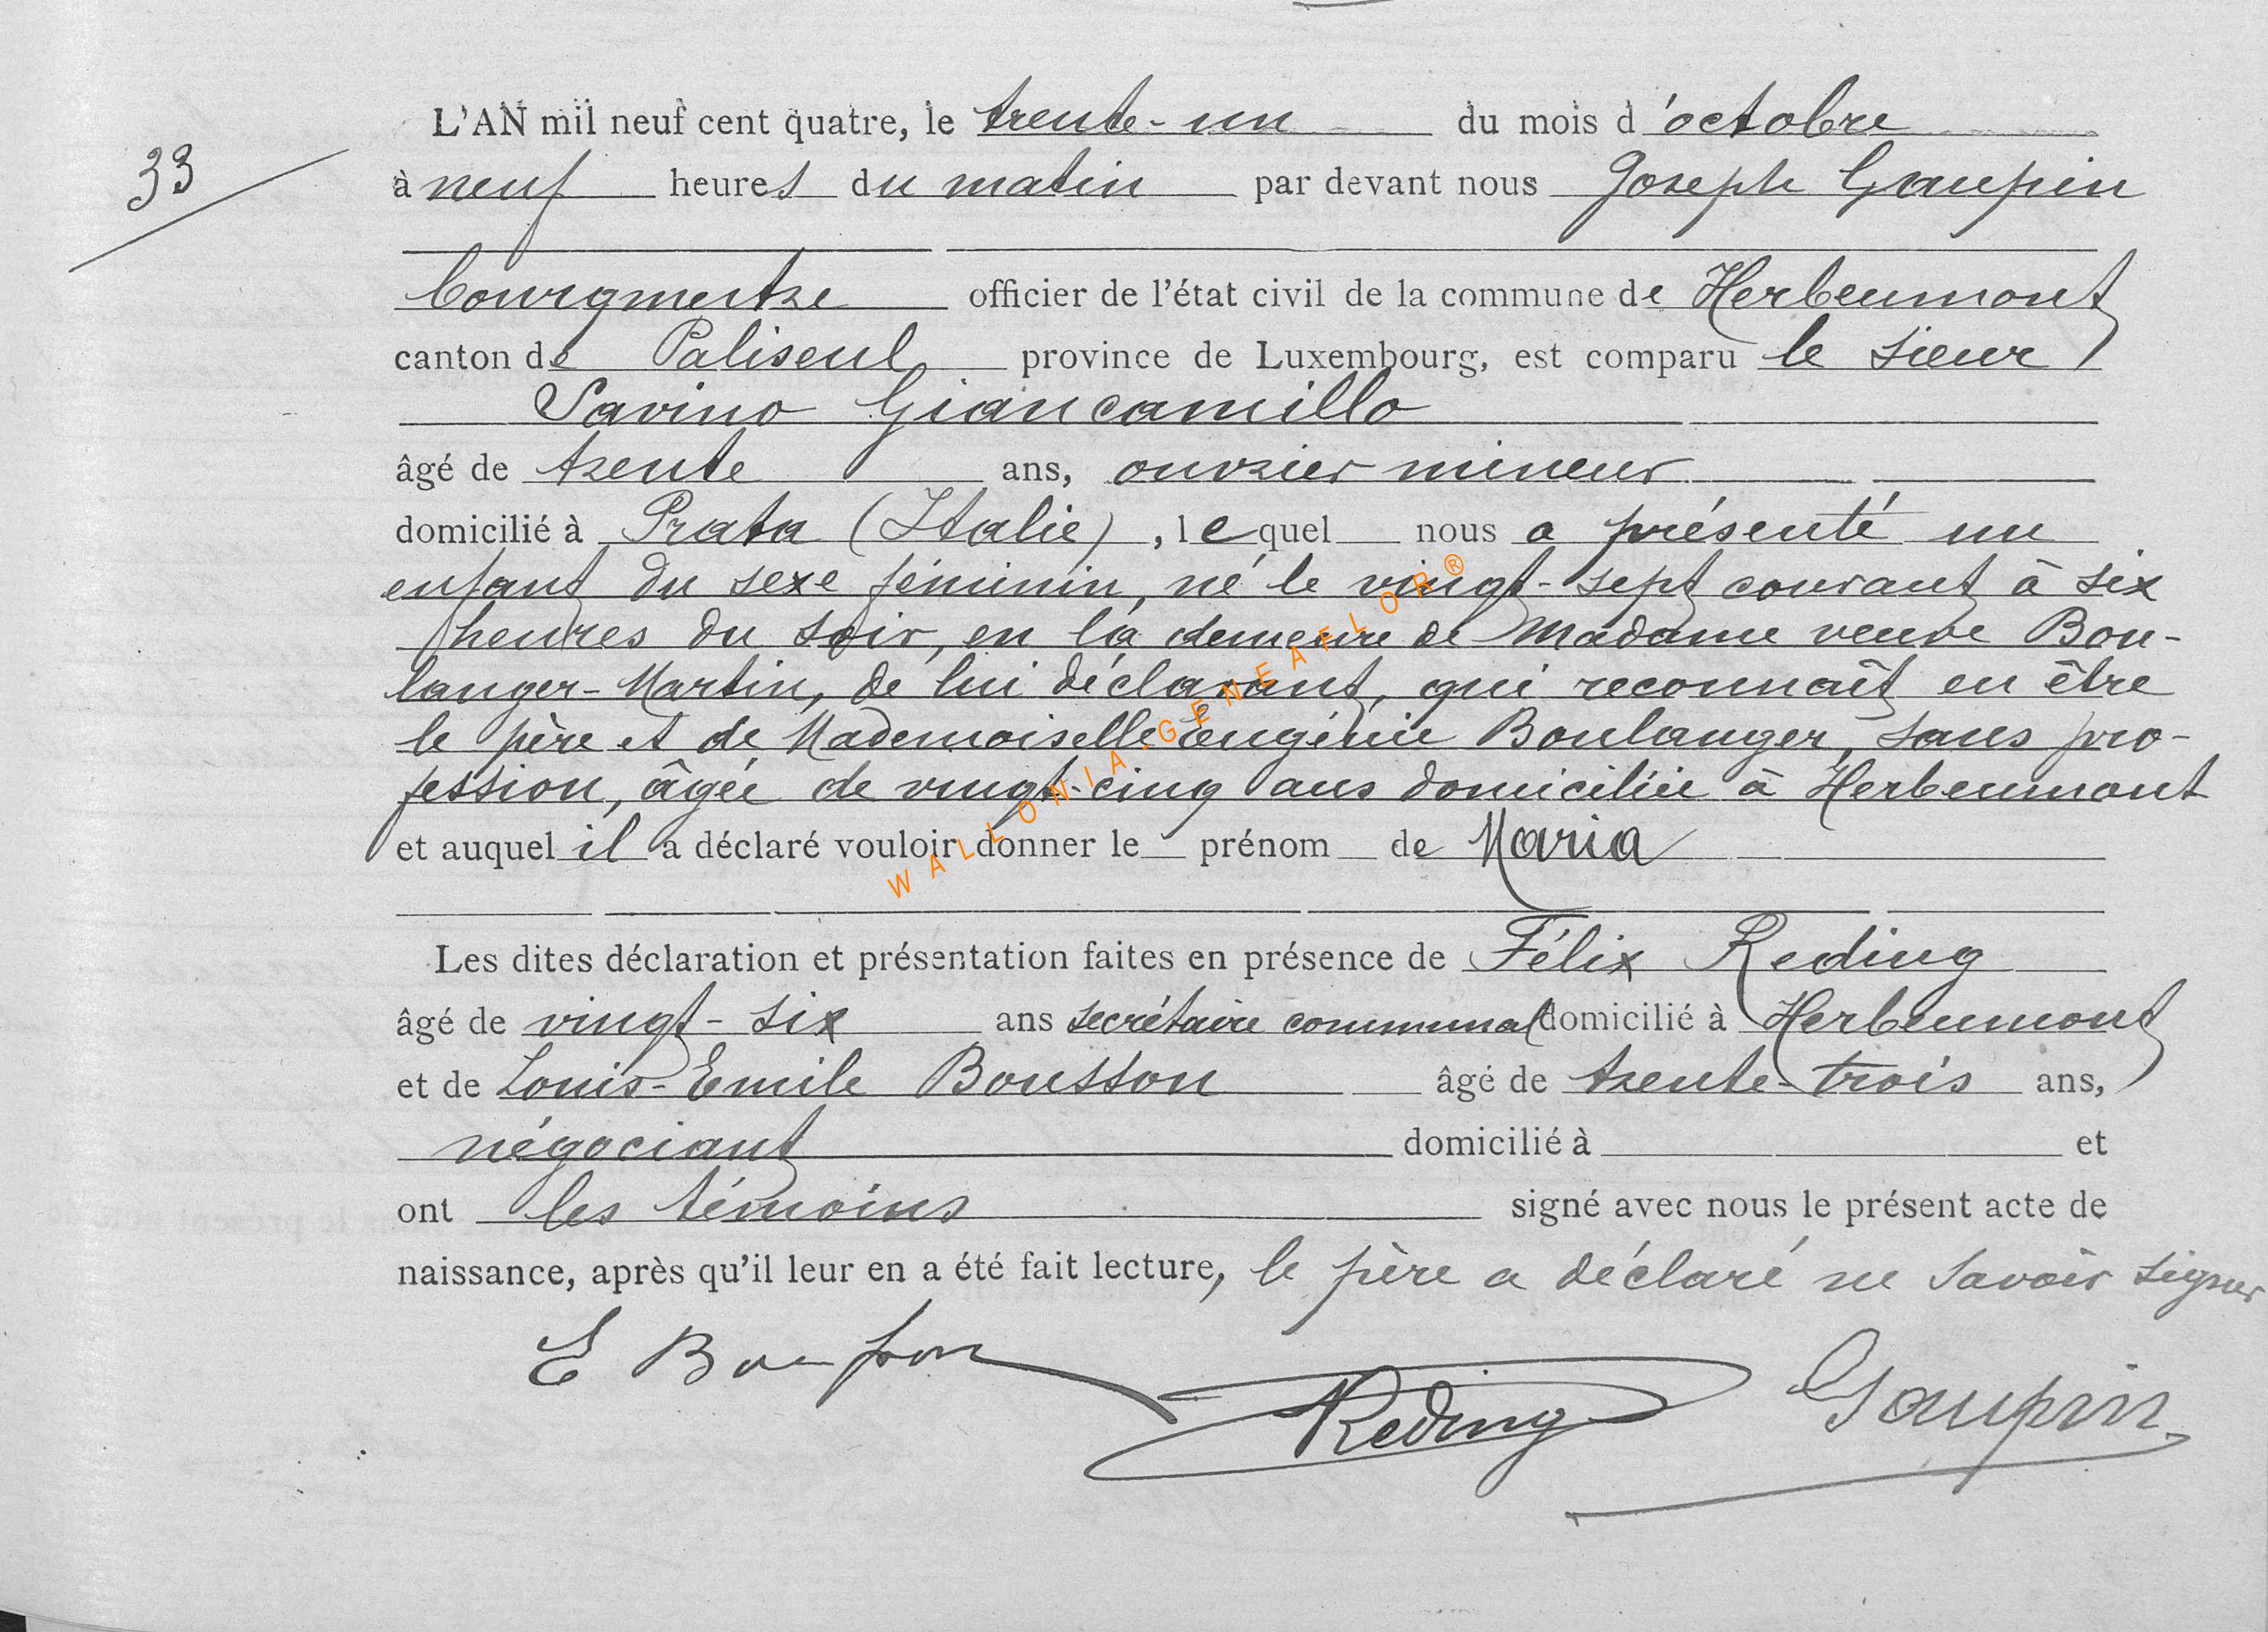 33
L'AN mil neuf cent quatre, le trente-un du mois d'octobre
à neuf heures du matin par devant nous Joseph Gaupin
bourgmestre officier de l'état civil de la commune de Herbeumont
canton de Paliseul province de Luxembourg, est comparu le sieur
Savino Giancamillo
âgé de trente ans, ouvrier mineur
domicilié à Prata (Italie), lequel nous a présenté un
enfant du sexe féminin, né le vingt-sept courant à six
heures du soir, en la demeure de Madame veuve Bou-
langer-Martin, de lui déclarant, qui reconnaît en être
le père et de Mademoiselle Eugénie Boulanger, sans pro-
fession, âgée de vingt-cinq ans domiciliée à Herbeumont
et auquel il a déclaré vouloir donner le prénom de Maria
Les dites déclaration et présentation faites en présence de Félix Reding
âgé de vingt-six ans secrétaire communal domicilié à Herbeumont
et de Louis-Emile Bousson âgé de trente-trois ans,
négociant domicilié à et
ont les témoins signé avec nous le présent acte de
naissance, après qu'il leur en a été fait lecture, le père a déclaré ne savoir signer
E Bousson Reding Gaupin
WALLONIA-GENEAFLOR®